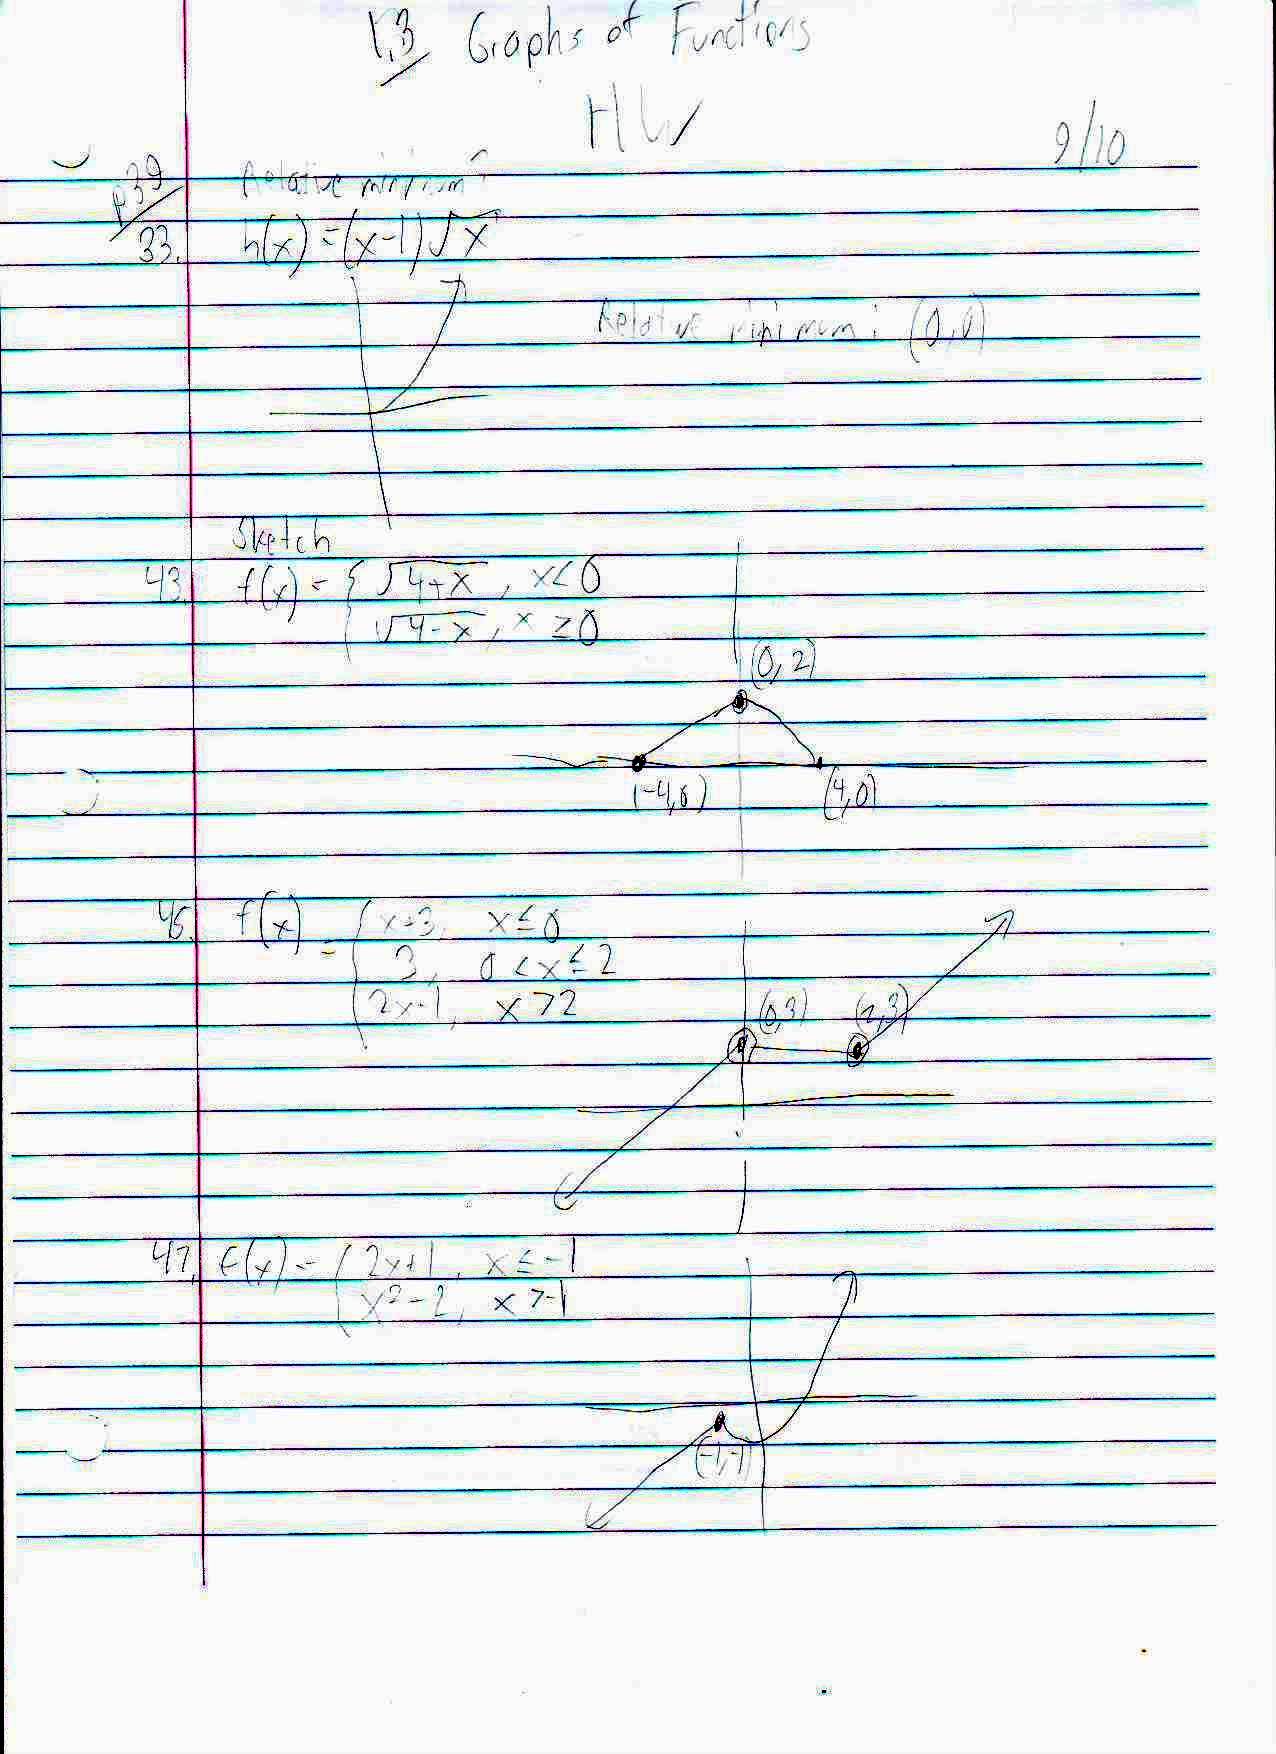 1.3 Graphs of Functions
HW
9/10
p39 Relative minimum?
33. h(x) = (x-1)√x
Relative minimum: (0,0)
Sketch
43. f(x) = { √4+x, x<0
√4-x, x ≥0
(0,2)
(-4,0) (4,0)
45. f(x) = { x+3, x≤0
3, 0<x≤2
2x-1, x>2
(0,3) (2,3)
47. f(x) = { 2x+1, x≤-1
x²-2, x>-1
(-1,-1)